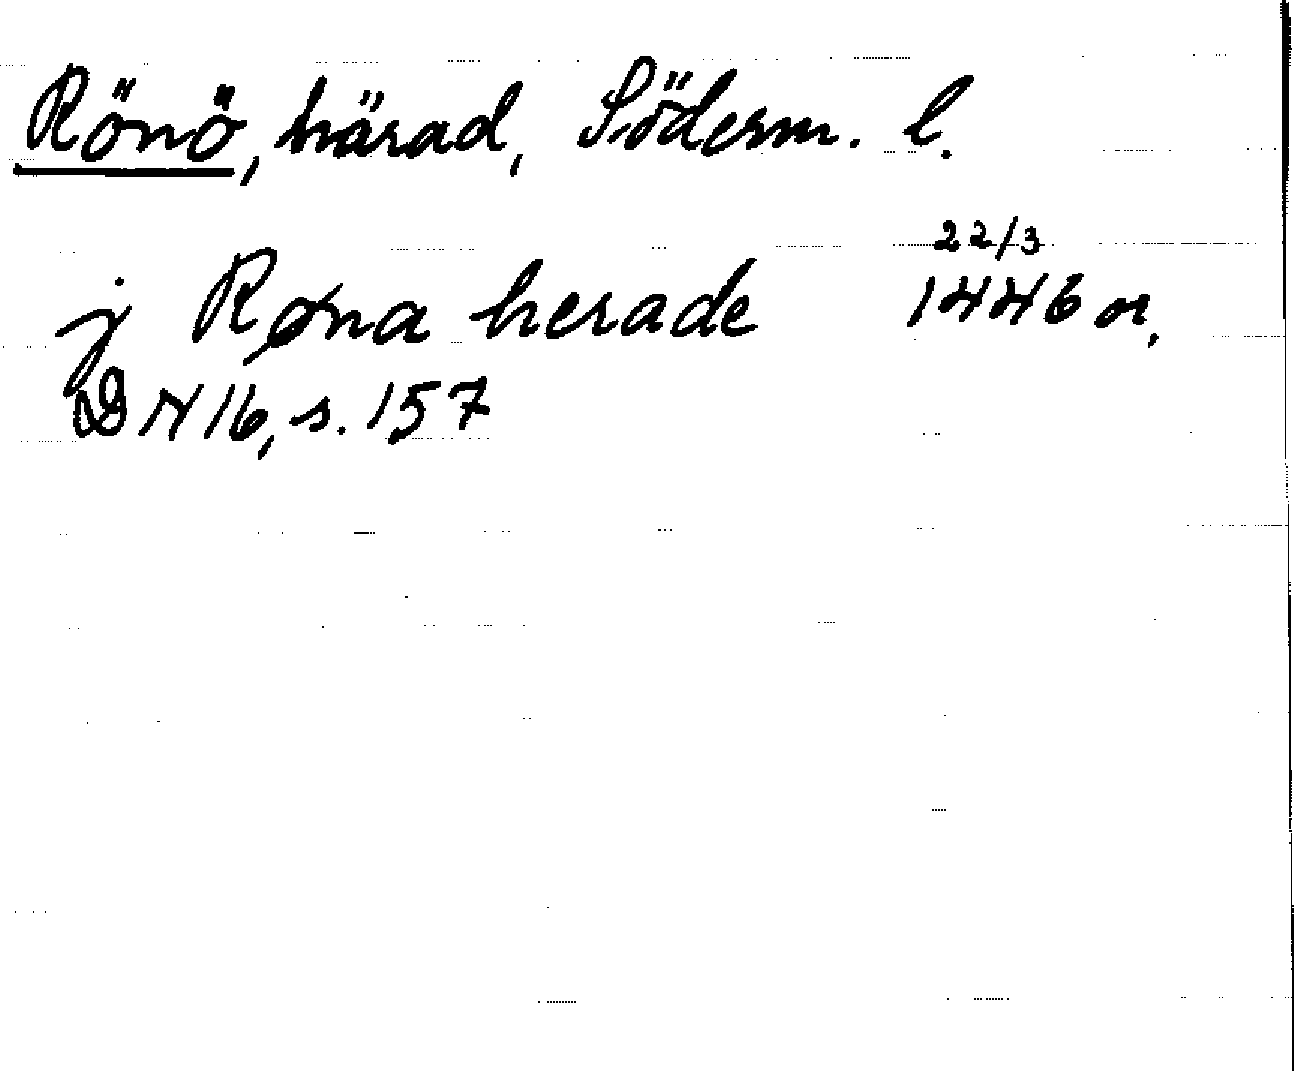 Rönö, härad, Söderm. l.
j Røna herade 22/3 1446 or.
DN 16, s. 157